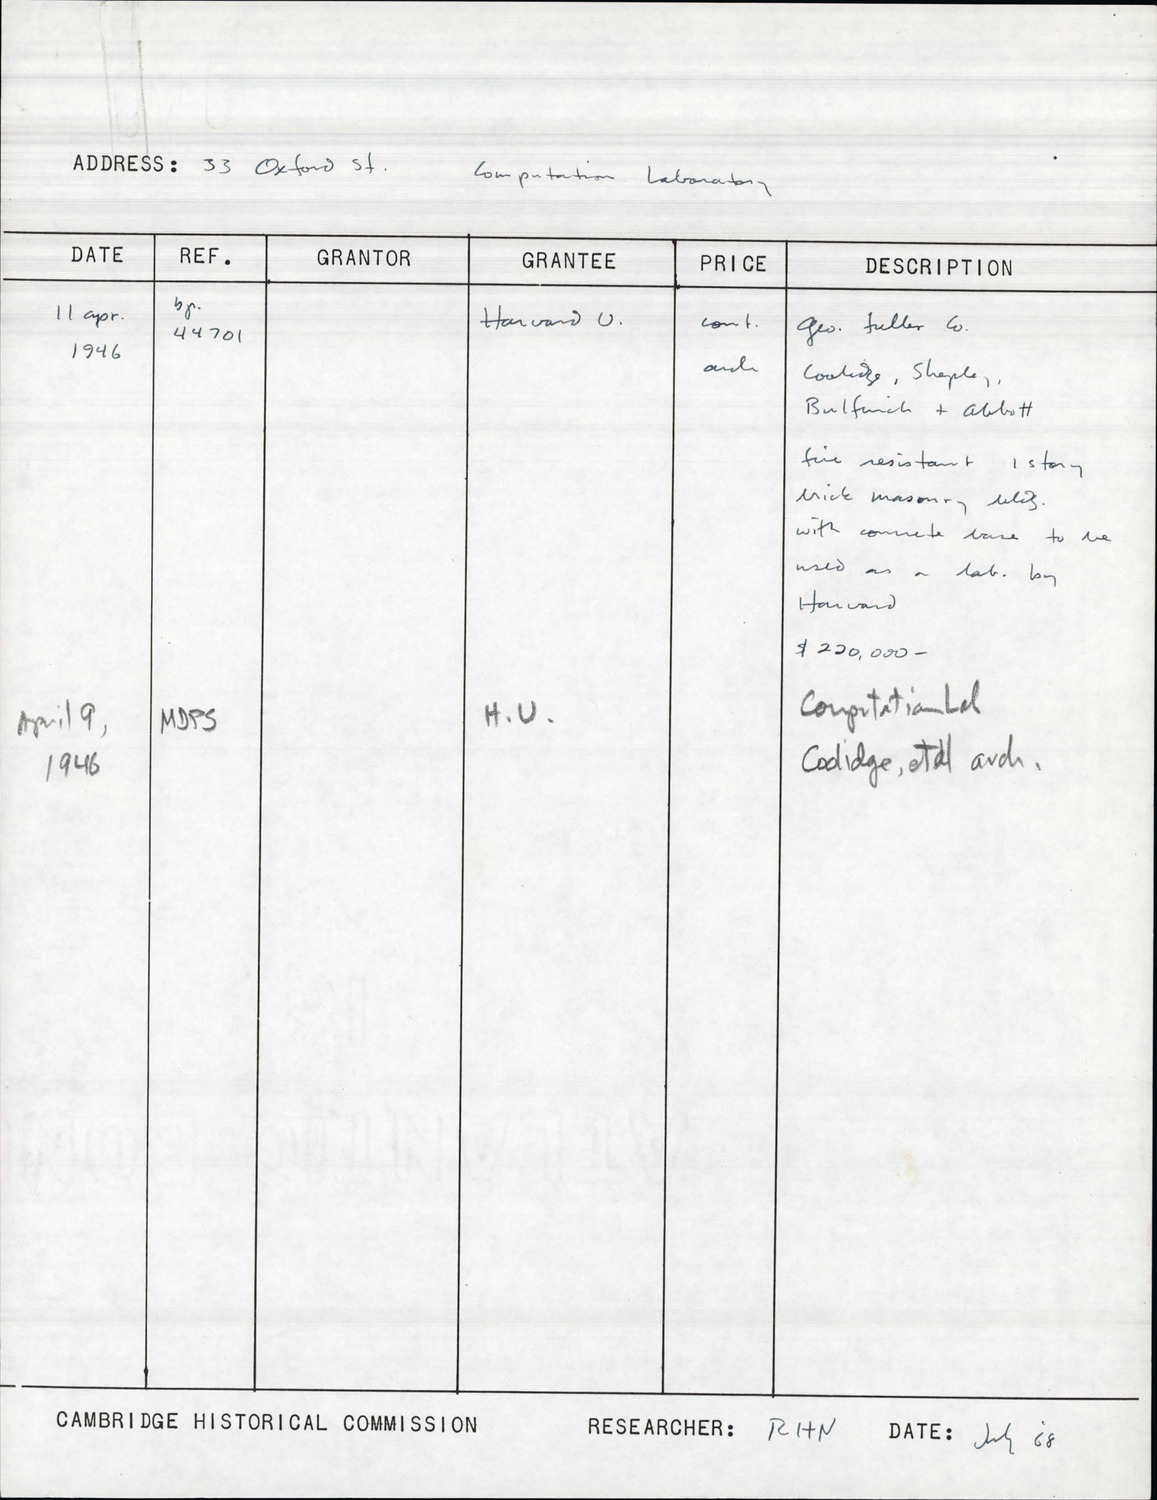 ADDRESS: 33 Oxford St. Computation Laboratory
DATE REF. GRANTOR GRANTEE PRICE DESCRIPTION
11 apr. 1946 bp. 44701 Harvard U. cont. Geo. Fuller Co.
arch Coolidge, Shepley,
Bulfinch + Abbott
fire resistant 1 story
brick masonry bldg.
with concrete base to be
used as a lab. by
Harvard
$ 220,000 -
April 9, 1946 MDPS H.U. Computation Lab
Coolidge, et al arch.
CAMBRIDGE HISTORICAL COMMISSION RESEARCHER: RHN DATE: July '68